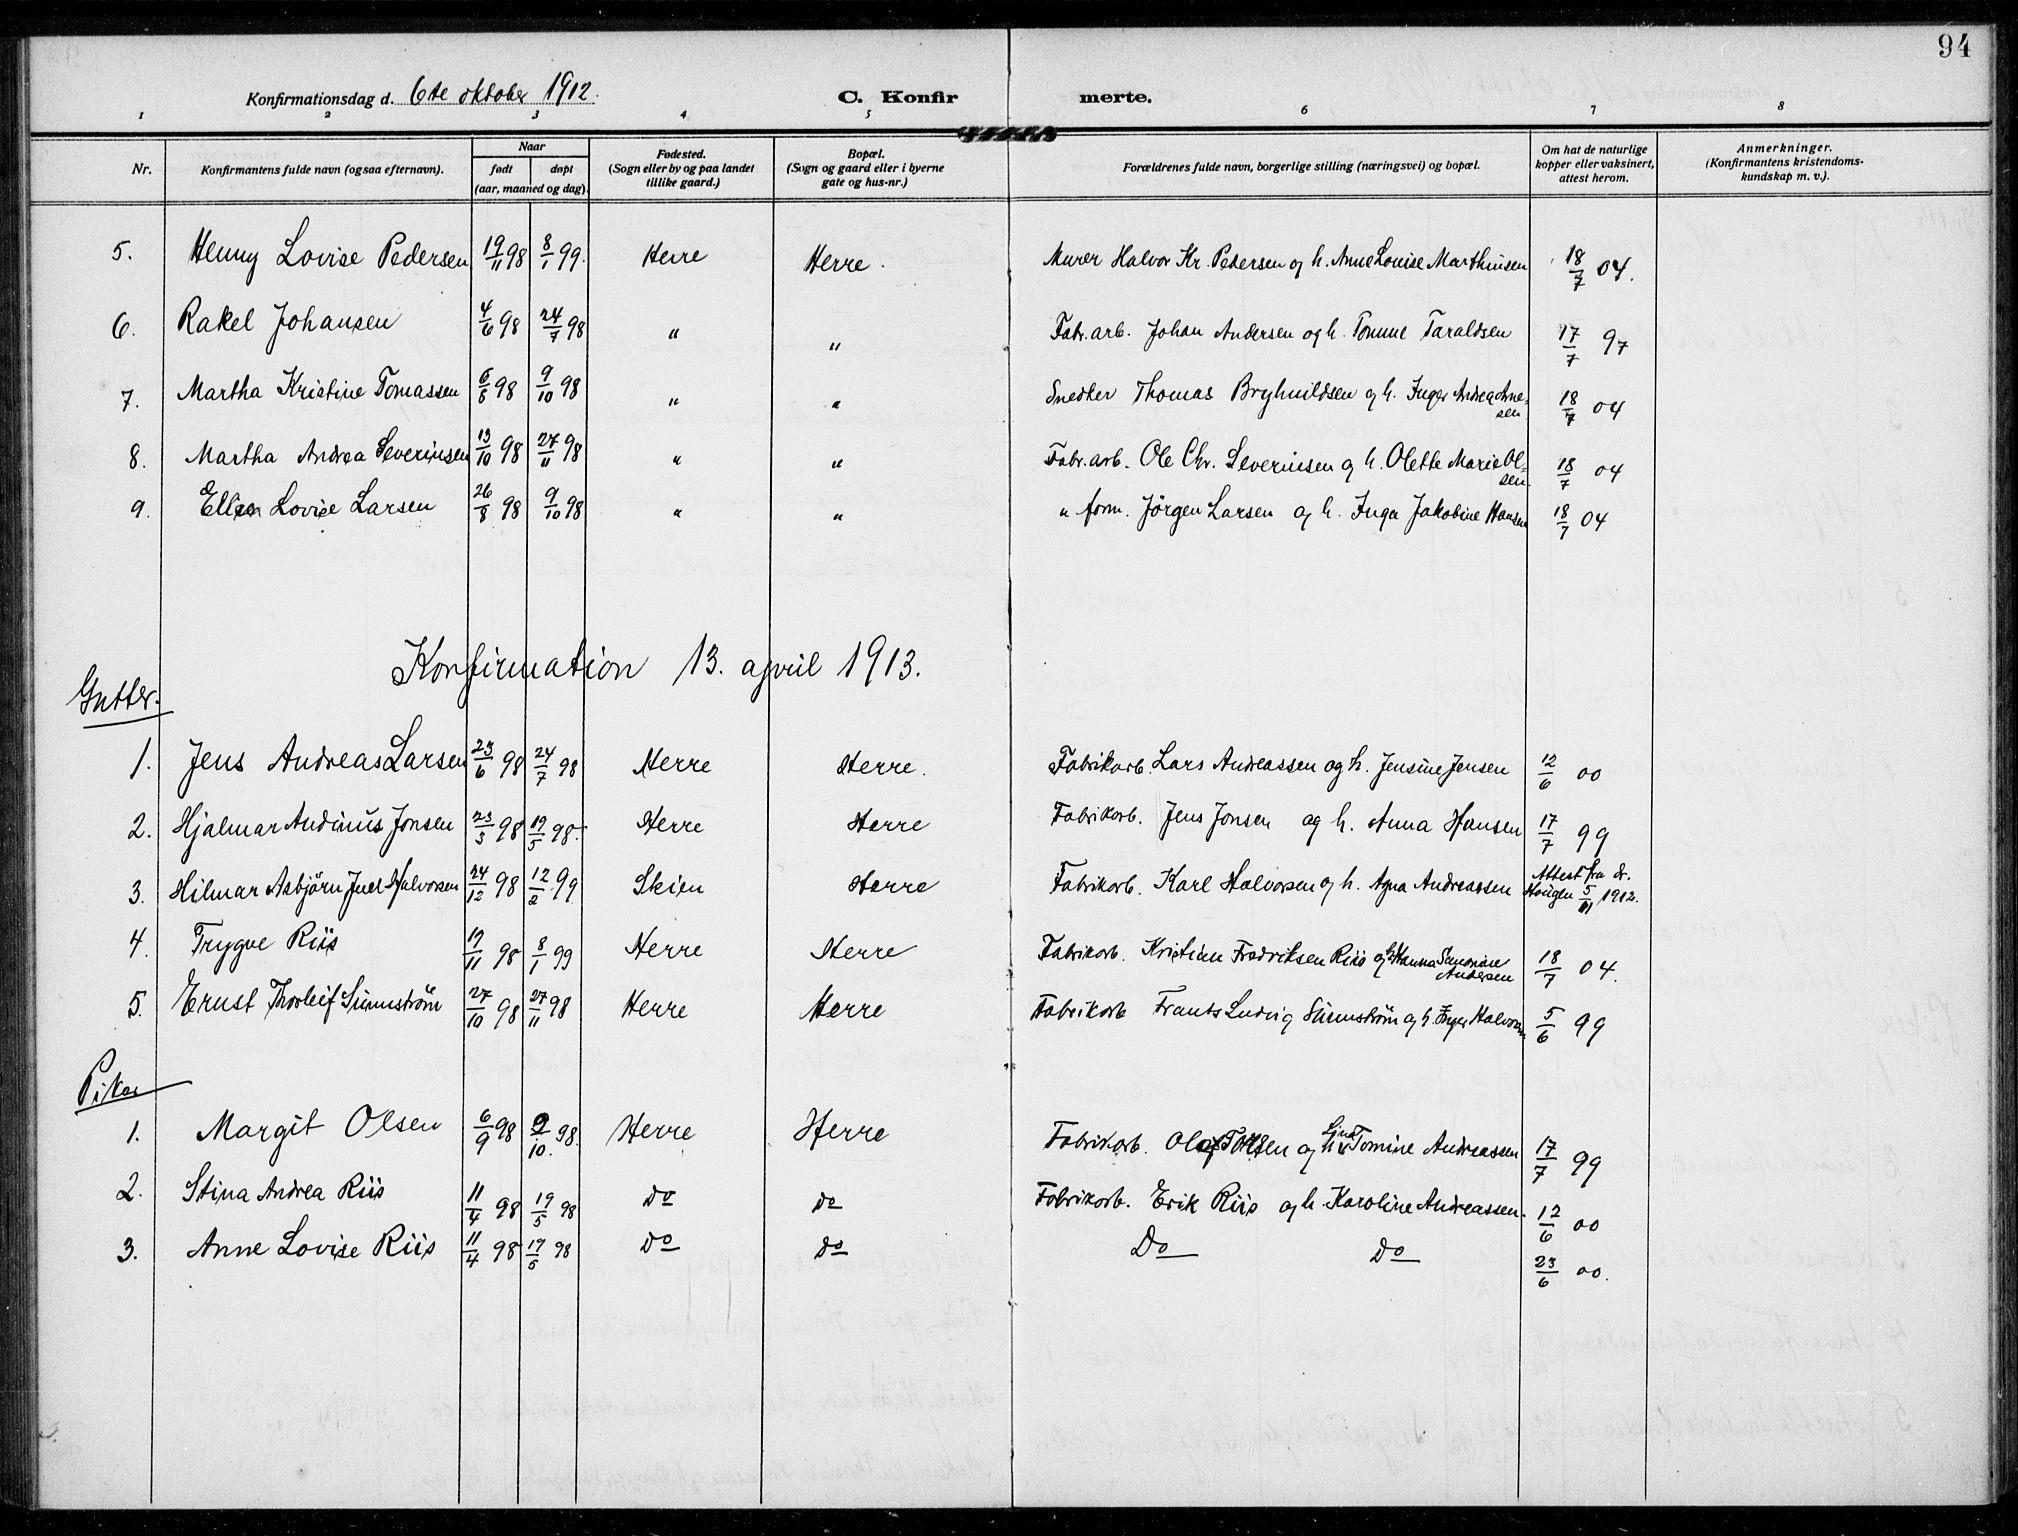 94
Konfirmationsdag d. 6te oktober 1912. C. Konfir merte.
1 2 3 4 5 6 7 8
Nr. Konfirmantens fulde navn (ogsaa efternavn). Naar født døpt (aar, maaned og dag). Fødested. (Sogn eller by og paa landet tillike gaard.) Bopæl. (Sogn og gaard eller i byerne gate og hus-nr.) Forældrenes fulde navn, borgerlige stilling (næringsvei) og bopæl. Om hat de naturlige kopper eller vaksinert, attest herom. Anmerkninger. (Konfirmantens kristendoms- kundskap m. v.).
5. Henny Lovise Pedersen 19/11 98 8/1 99. Herre Herre. Murer Halvor Kr. Pedersen og h. Anne Louise Marthinsen 18/7 04.
6. Rakel Johansen 4/6 98 24/7 98 " " Fabr.arb. Johan Andersen og h. Tomine Taraldsen 17/7 97
7. Martha Kristine Tomassen 6/8 98 9/10 98 " " Snedker Thomas Bryhnildsen og h. Inger Andrea Arne- sen 18/7 04
8. Martha Andrea Severinsen 13/10 98 27/11 98 " " Fabr.arb. Ole Chr. Severinsen og h. Olette Marie Ol- sen 18/7 04
9. Ellen Lovise Larsen 26/8 98 9/10 98 " " " form. Jørgen Larsen og h. Inga Jakobine Hansen 18/7 04
Konfirmation 13. april 1913.
Gutter.
1. Jens Andreas Larsen 23/6 98 24/7 98 Herre Herre. Fabrikarb. Lars Andreassen og h. Jensine Jensen 12/6 00
2. Hjalmar Andinus Jonsen 23/3 98 19/5 98. Herre Herre Fabrikarb. Jens Jonsen og h. Anna Hansen 17/7 99
3. Hilmar Asbjörn Juel Halvorsen 24/12 98 12/2 99 Skien Herre Fabrikarb. Karl Halvorsen og h. Agna Andreassen Attest fra dr. Haugen 5/11 1912.
4. Trygve Riis 19/11 98 8/1 99 Herre Herre Fabrikarb. Kristian Fredriksen Riis og h. Hanna Andersen 18/7 04.
5. Ernst Thorleif Sünnström 27/10 98 27/11 98 Herre Herre Fabrikarb Frants Ludvig og h. Inger Halvorsen 5/6 99
Piker
1. Margit Olsen 6/9 98 9/10. 98. Herre Herre Fabrikarb. Olaf og h. Tomine Andreassen 17/7 99
2. Stina Andrea Riis 11/4 98 19/5 98 Do do Fabrikarb. Erik Riis og h. Karoline Andreassen. 12/6 00
3. Anne Lovise Riis 11/4 98 19/5 98 Do do Do Do 23/6 00.